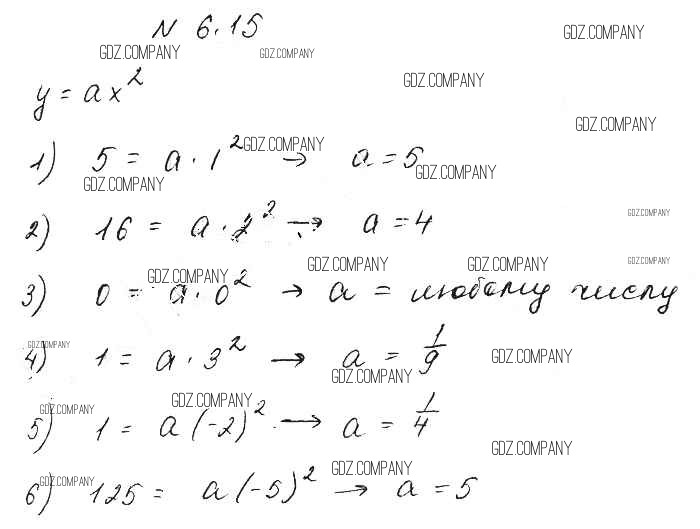 N 6.15
GDZ.COMPANY GDZ.COMPANY GDZ.COMPANY
y = ax²
GDZ.COMPANY
GDZ.COMPANY
1) 5 = a · 1² → a = 5
GDZ.COMPANY
GDZ.COMPANY GDZ.COMPANY
2) 16 = a · 2² → a = 4
GDZ.COMPANY
GDZ.COMPANY GDZ.COMPANY GDZ.COMPANY GDZ.COMPANY
3) 0 = a · 0² → a = любому числу
4) 1 = a · 3² → a = 1/9
GDZ.COMPANY GDZ.COMPANY
GDZ.COMPANY
5) 1 = a (-2)² → a = 1/4
GDZ.COMPANY GDZ.COMPANY
GDZ.COMPANY
6) 125 = a (-5)² → a = 5
GDZ.COMPANY GDZ.COMPANY